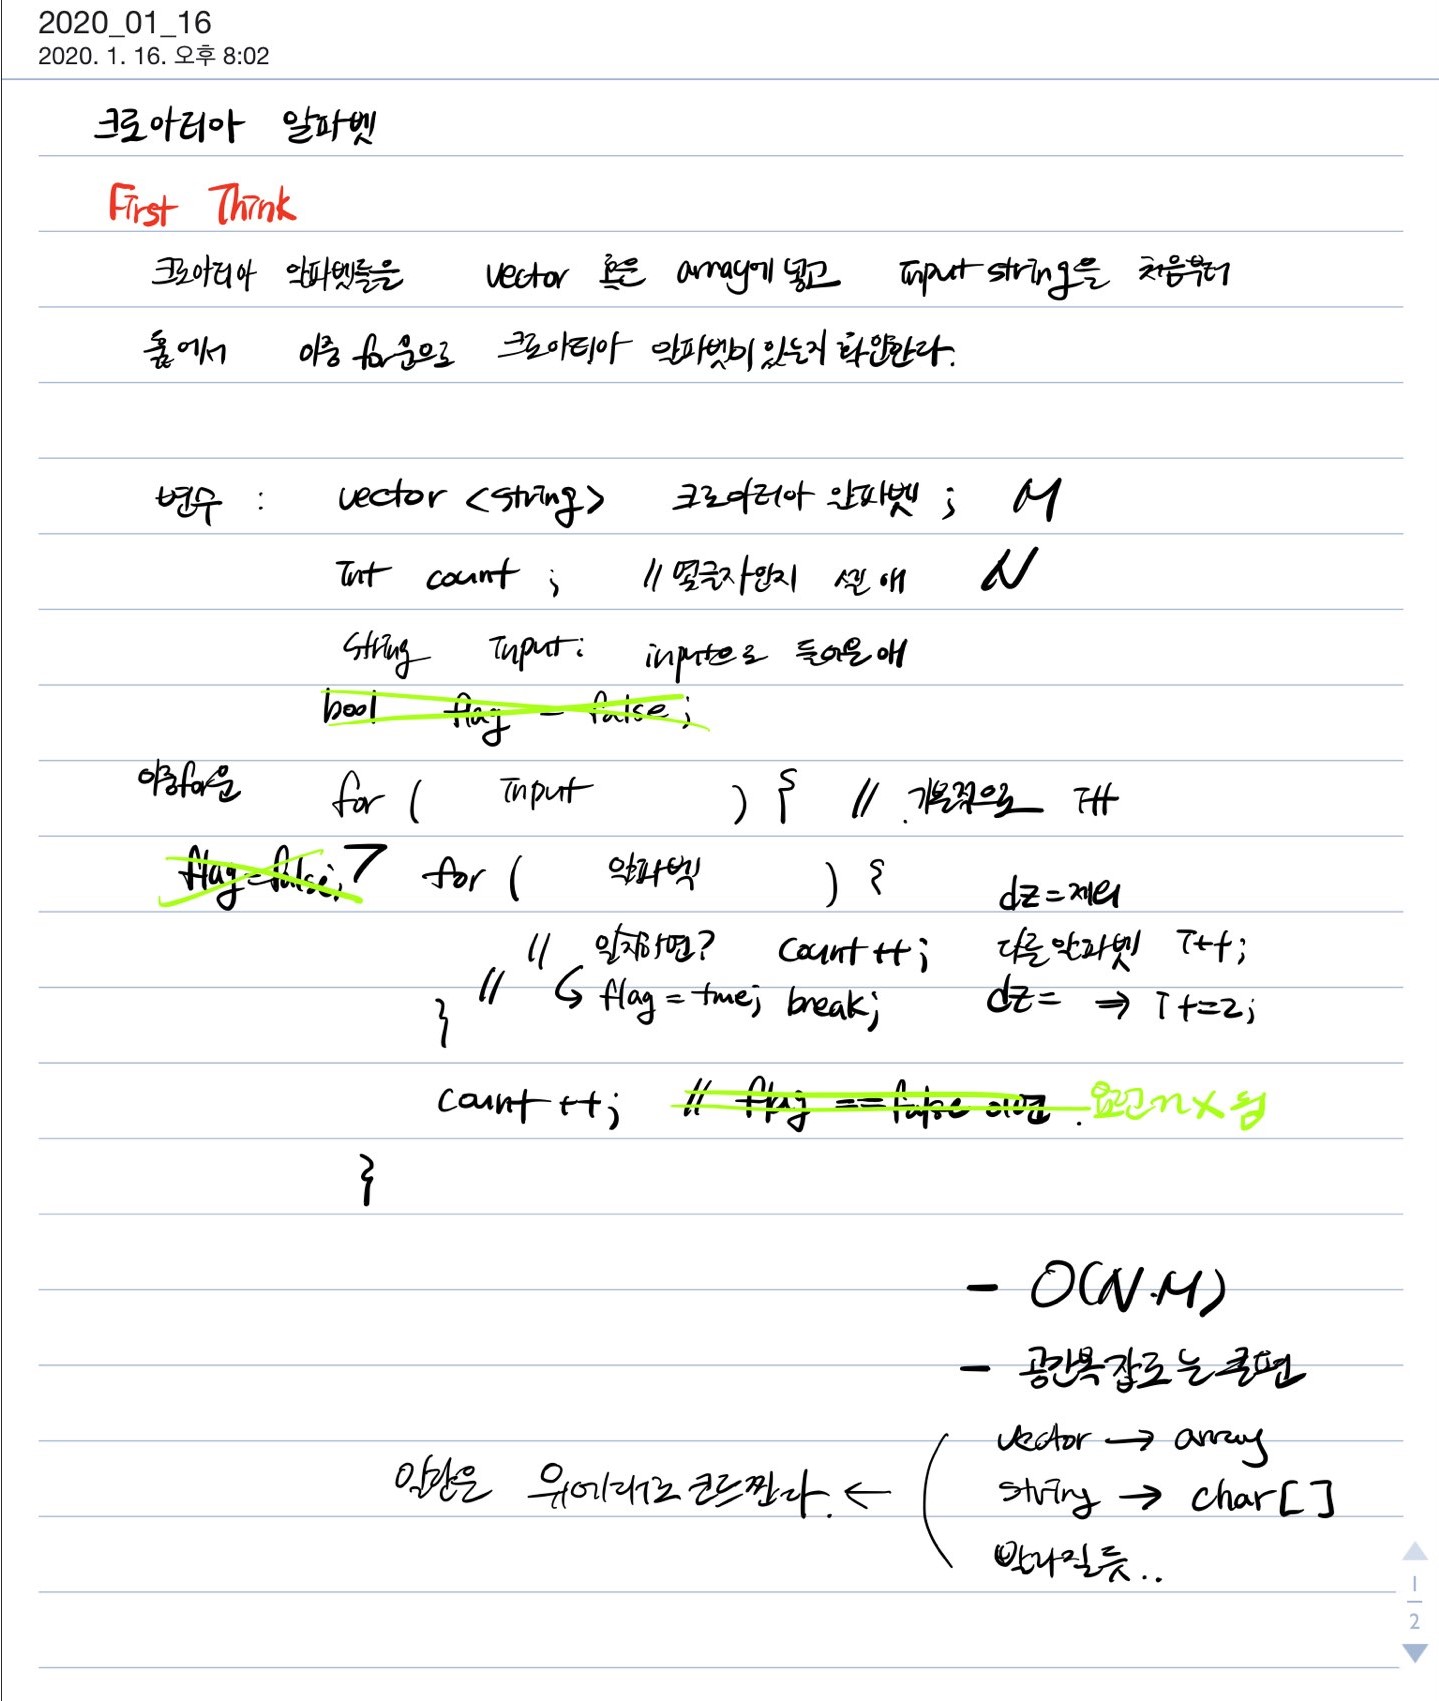 2020_01_16
2020. 1. 16. 오후 8:02
크로아티아 알파벳
First Think
크로아티아 알파벳들을 vector 혹은 array에 넣고 input string을 처음부터
훑에서 이중 for문으로 크로아티아 알파벳이 있는지 확인한다.
변수 : vector <string> 크로아티아 알파벳 ; M
int count ; // 몇글자인지 셀 애 N
string input: input으로 들어온애
bool flag = false;
이중for문 for ( input ) { // 기본적으로 i++
flag=false; for ( 알파벳 ) { dz=제외
// 일치하면? count++; 다른알파벳 i++;
// ↳ flag = true; break; dz= → i+=2;
}
count ++; // flag ==false 이면. 요건 n X 됨
}
- O(N.M)
- 공간복잡도는 클편
vector → array
일단은 위에대로 코드짠다. ← string → char[]
빨라질듯..
1
2